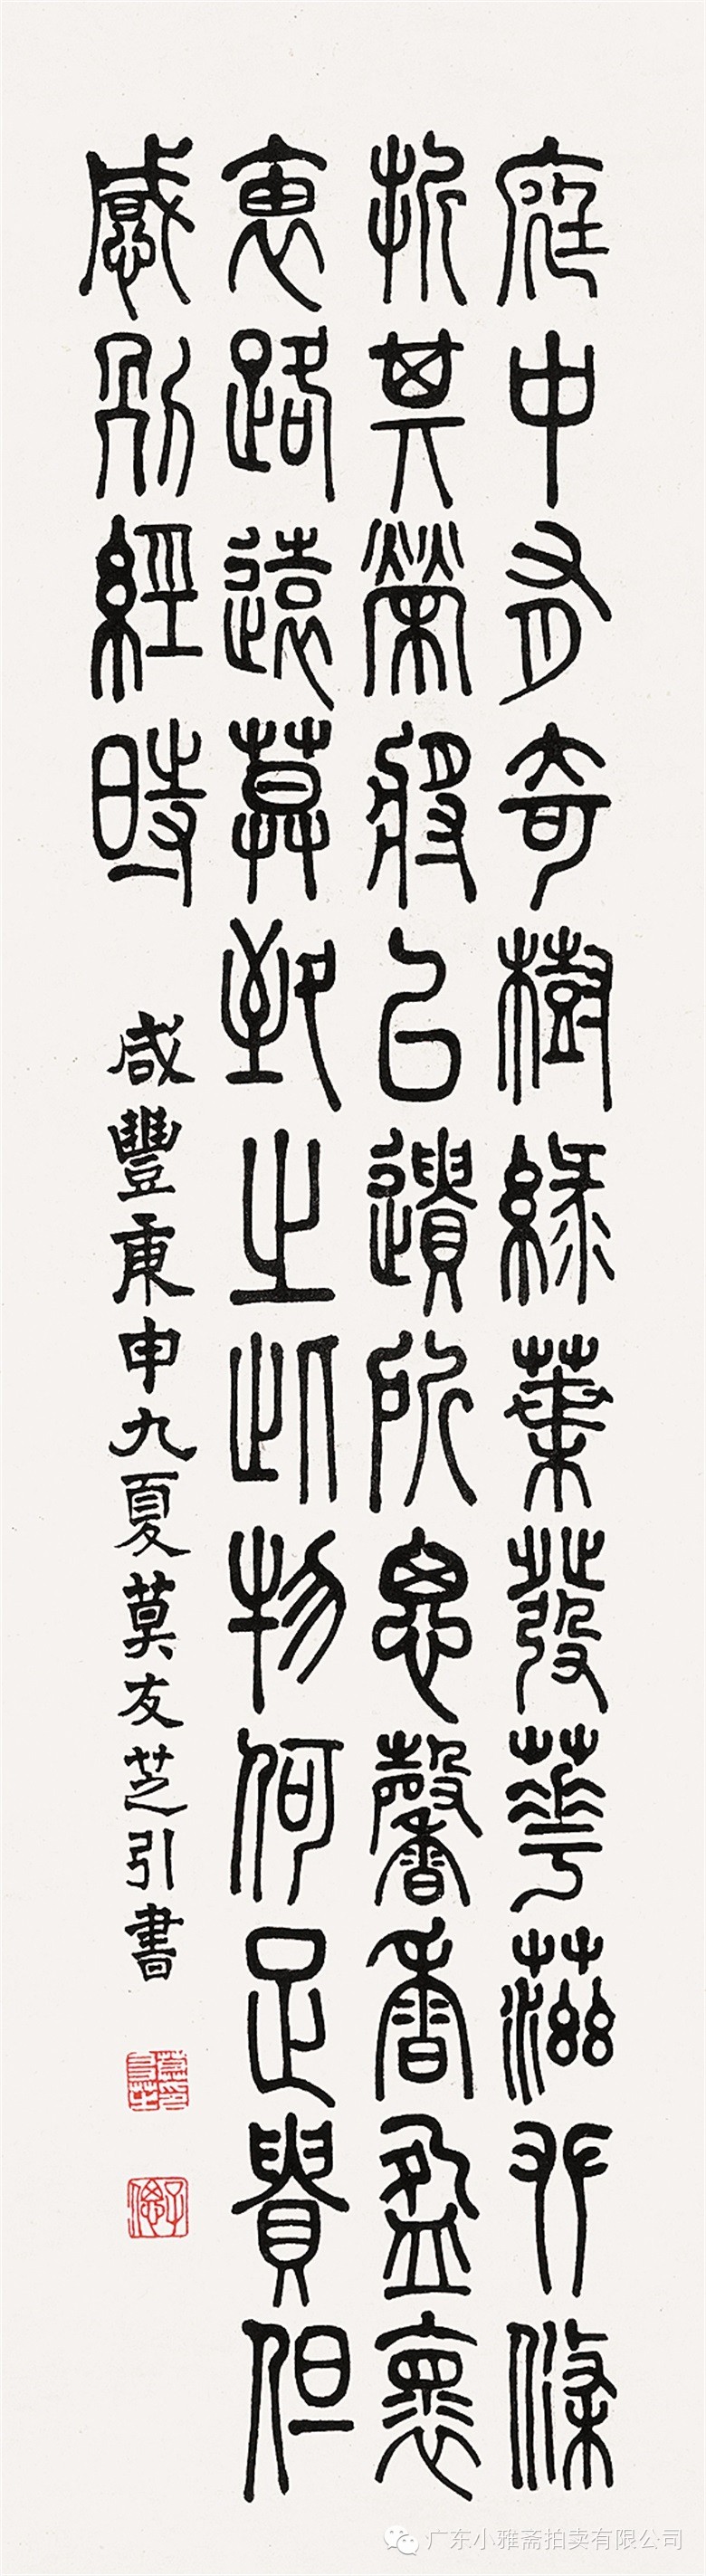 庭中有奇樹緑葉發華滋攀條
折其榮將以遺所思馨香盈懷
袖路遠莫致之此物何足貴但
感別經時
咸豐庚申九夏莫友芝引書
莫印友芝
子偲
广东小雅斋拍卖有限公司